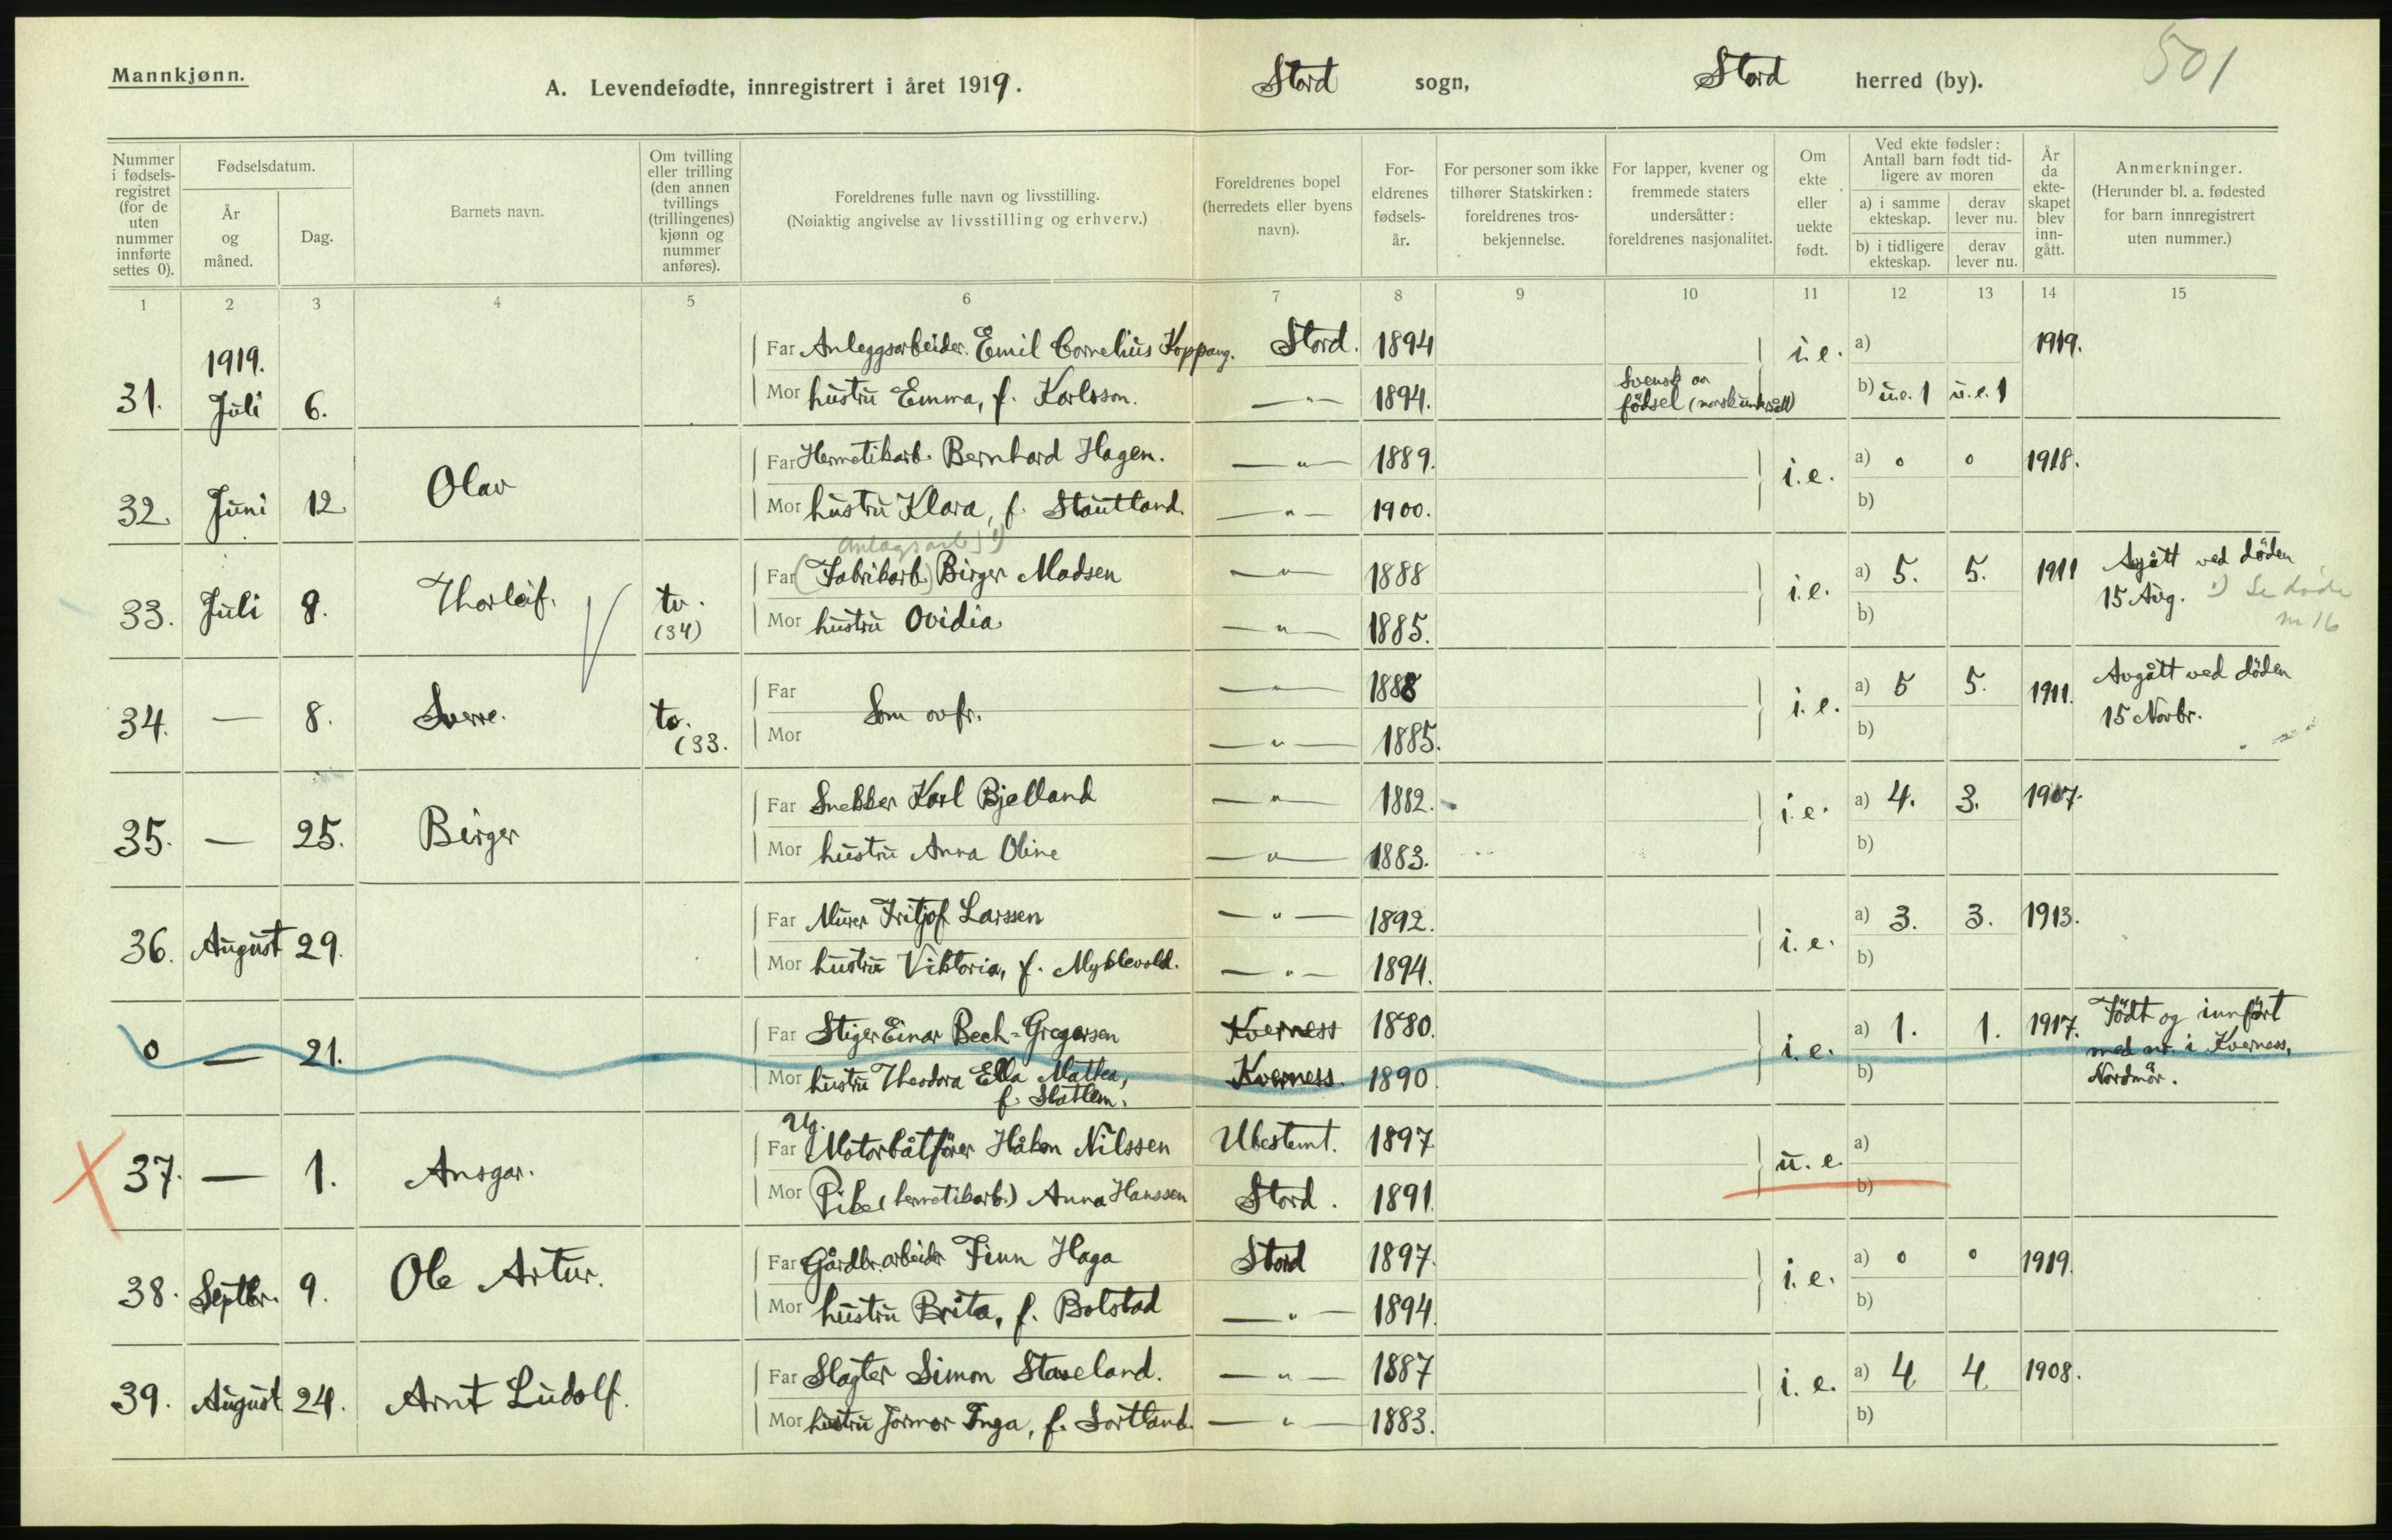 501
Mannkjønn.
A. Levendefødte, innregistrert i året 1919.
Stord sogn, Stord herred (by).
Nummer i fødsels-registret (for de uten nummer innførte settes 0).
Fødselsdatum.
År og måned.
Dag.
Barnets navn.
Om tvilling eller trilling (den annen tvillings (trillingenes) kjønn og nummer anføres).
Foreldrenes fulle navn og livsstilling.
(Nøiaktig angivelse av livsstilling og erhverv.)
Foreldrenes bopel (herredets eller byens navn).
For-eldrenes fødsels-år.
For personer som ikke tilhører Statskirken: foreldrenes tros-bekjennelse.
For lapper, kvener og fremmede staters undersåtter: foreldrenes nasjonalitet.
Om ekte eller uekte født.
Ved ekte fødsler: Antall barn født tid-ligere av moren
a) i samme ekteskap.
derav lever nu.
b) i tidligere ekteskap.
derav lever nu.
År da ekte-skapet blev inn-gått.
Anmerkninger.
(Herunder bl. a. fødested for barn innregistrert uten nummer.)
1 2 3 4 5 6 7 8 9 10 11 12 13 14 15
1919.
31. Juli 6.
Far Anleggsarbeider Emil Cornelius Koppang. Stord. 1894 i.e. a) 1919.
Mor hustru Emma, f. Karlsson. —"— 1894. Svensk av fødsel (norsk undersått) b) u.e. 1 u.e. 1
32. Juni 12. Olav
Far Hermetikarb. Bernhard Hagen. —"— 1889. i.e. a) 0 0 1918.
Mor hustru Klara, f. Stautland. —"— 1900. b)
anlægsarb. 1)
33. Juli 8. Thorleif. tv. (34)
Far (Fabrikarb.) Birger Madsen —"— 1888 i.e. a) 5. 5. 1911 Avgått ved döden
Mor hustru Ovidia —"— 1885. b) 15 Aug. 1) Se døde nr 16
34. — 8. Sverre. tv. (33.
Far Som ovfr. —"— 1888 i.e. a) 5 5. 1911. Avgått ved döden
Mor —"— 1885. b) 15 Novbr.
35. — 25. Birger
Far Snekker Karl Bjelland —"— 1882. i.e. a) 4. 3. 1907.
Mor hustru Anna Oline —"— 1883. b)
36. August 29.
Far Murer Fritjof Larssen —"— 1892. i.e. a) 3. 3. 1913.
Mor hustru Viktoria, f. Myklevold. —"— 1894. b)
0 — 21.
Far Stiger Einar Bech-Gregersen Kverness 1880. i.e. a) 1. 1. 1917. Födt og innfört
Mor hustru Theodora Ella Mathea, Kverness. 1890 b) med nr. i Kverness,
f. Slatlem. Nordmör.
37. — 1. Ansgar.
Ug.
Far Motorbåtförer Håkon Nilssen Ubestemt. 1897 u.e. a)
Mor Pike (hermetikarb.) Anna Hanssen Stord. 1891. b)
38. Septbr. 9. Ole Artur.
Far Gårdbr.arbeider Finn Haga Stord 1897. i.e. a) 0 0 1919.
Mor hustru Brita, f. Bolstad —"— 1894. b)
39. August 24. Arnt Ludolf.
Far Slagter Simon Staveland. —"— 1887 i.e. a) 4 4 1908.
Mor hustru Jormor Inga, f. Sortland. —"— 1883. b)